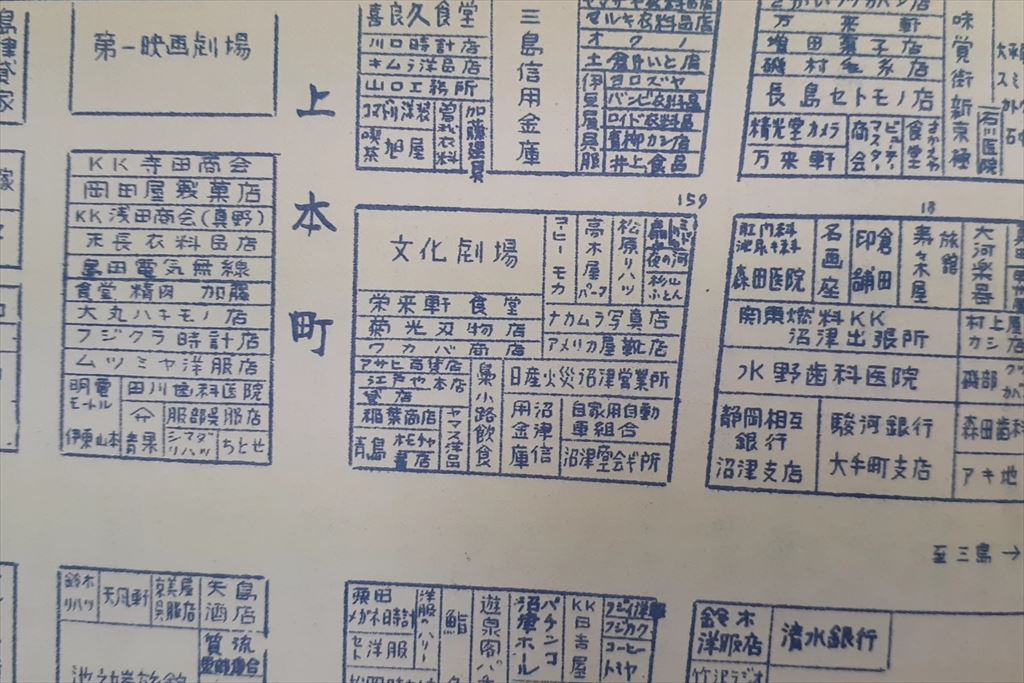 第一映画劇場
上本町
喜良久食堂
川口時計店
キムラ洋品店
山口工務所
コマドリ洋装
喫茶
旭屋
三島信用金庫
マルキ衣料品店
オクノ
ヨロズヤ
バンビ衣料品
ロイド衣料店
青柳カシ店
井上食品
万来軒
増田菓子店
長島セトモノ店
精光堂カメラ
万来軒
味覚街新京極
石川医院
KK寺田商会
岡田屋製菓店
KK浅田商会(真野)
末長衣料品店
島田電気無線
食堂 精肉 加藤
大丸ハキモノ店
フジクラ時計店
ムツミヤ洋服店
明電モートル
田川歯科医院
服部呉服店
伊東山本
青果
シマダリハツ
ちとせ
159
文化劇場
コーヒーモカ
高木屋パーマ
松原リハツ
夜の河
杉山ふとん
栄来軒食堂
菊光刃物店
ワカバ商店
ナカムラ写真店
アメリカ屋靴店
アサヒ百貨店
江戸や本店
貸店
稲葉商店
青島書店
ホモチャ
ヤマス洋品
梟小路飲食
日産火災沼津営業所
沼津信用金庫
自家用自動車組合
沼津会ギ所
18
肛門科
泌尿キ科
森田医院
名画座
倉田印舗
寿々木屋旅館
大河楽器
関東燃料KK
沼津出張所
村上屋
カシ店
水野歯科医院
磯部
静岡相互銀行
沼津支店
駿河銀行
大手町支店
森田歯科
アキ地
至三島→
鈴木リハツ
天凡軒
京美屋呉服店
矢島酒店
質流
須田
メガネ時計
セト洋服
洋服のハリー
鮨
遊泉客パチ
沼津ホール
パチンコ
KK日吉屋
フジカク
コーヒー
トミヤ
鈴木洋服店
清水銀行
竹沢ラジオ